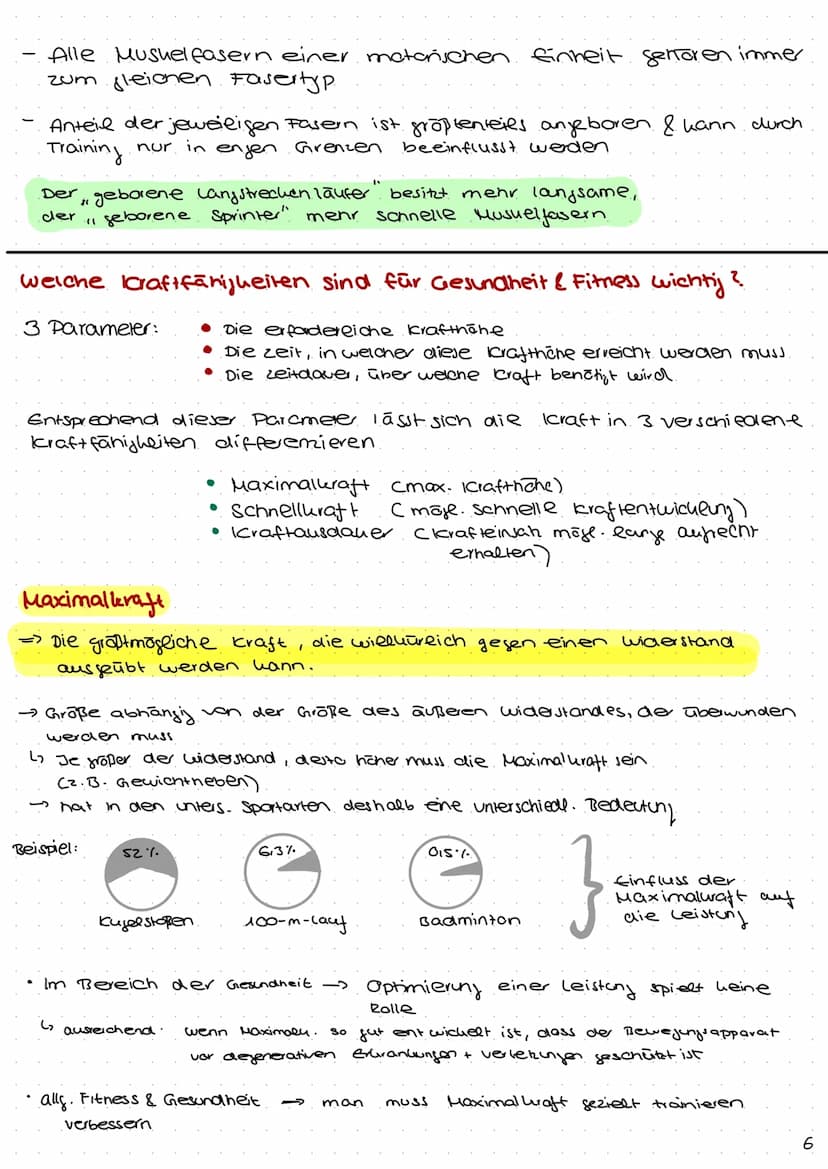 - Alle Muskelfasern einer motorischen Einheit gehören immer
zum gleichen Fasertyp
- Anteil der jeweiligen Fasern ist größtenteils angeboren & kann durch
Training nur in engen Grenzen beeinflusst werden
Der „geborene Langstreckenläufer" besitzt mehr langsame,
der „geborene Sprinter" mehr schnelle Muskelfasern
Welche Kraftfähigkeiten sind für Gesundheit & Fitness wichtig?
3 Parameter: • Die erforderliche Krafthöhe
• Die Zeit, in welcher diese Krafthöhe erreicht werden muss
• Die Zeitdauer, über welche Kraft benötigt wird
Entsprechend dieser Parameter lässt sich die Kraft in 3 verschiedene
Kraftfähigkeiten differenzieren
• Maximalkraft (max. Krafthöhe)
• Schnellkraft (mögl. schnelle Kraftentwicklung)
• Kraftausdauer (Krafteinsatz mögl. lange aufrecht
erhalten)
Maximalkraft
=> Die größtmögliche Kraft, die willkürlich gegen einen Widerstand
ausgeübt werden kann.
→ Größe abhängig von der Größe des äußeren Widerstandes, der überwunden
werden muss
↳ Je größer der Widerstand, desto höher muss die Maximalkraft sein
(z.B. Gewichtheben)
→ hat in den unters. Sportarten deshalb eine unterschiedl. Bedeutung
Beispiel: 52% 6,3% 0,5%
Kugelstoßen 100-m-Lauf Badminton
Einfluss der
Maximalkraft auf
die Leistung
• Im Bereich der Gesundheit → Optimierung einer Leistung spielt keine
Rolle
↳ ausreichend. wenn Maximalk. so gut entwickelt ist, dass der Bewegungsapparat
vor degenerativen Erkrankungen + Verletzungen geschützt ist
• allg. Fitness & Gesundheit → man muss Maximalkraft gezielt trainieren
verbessern
6